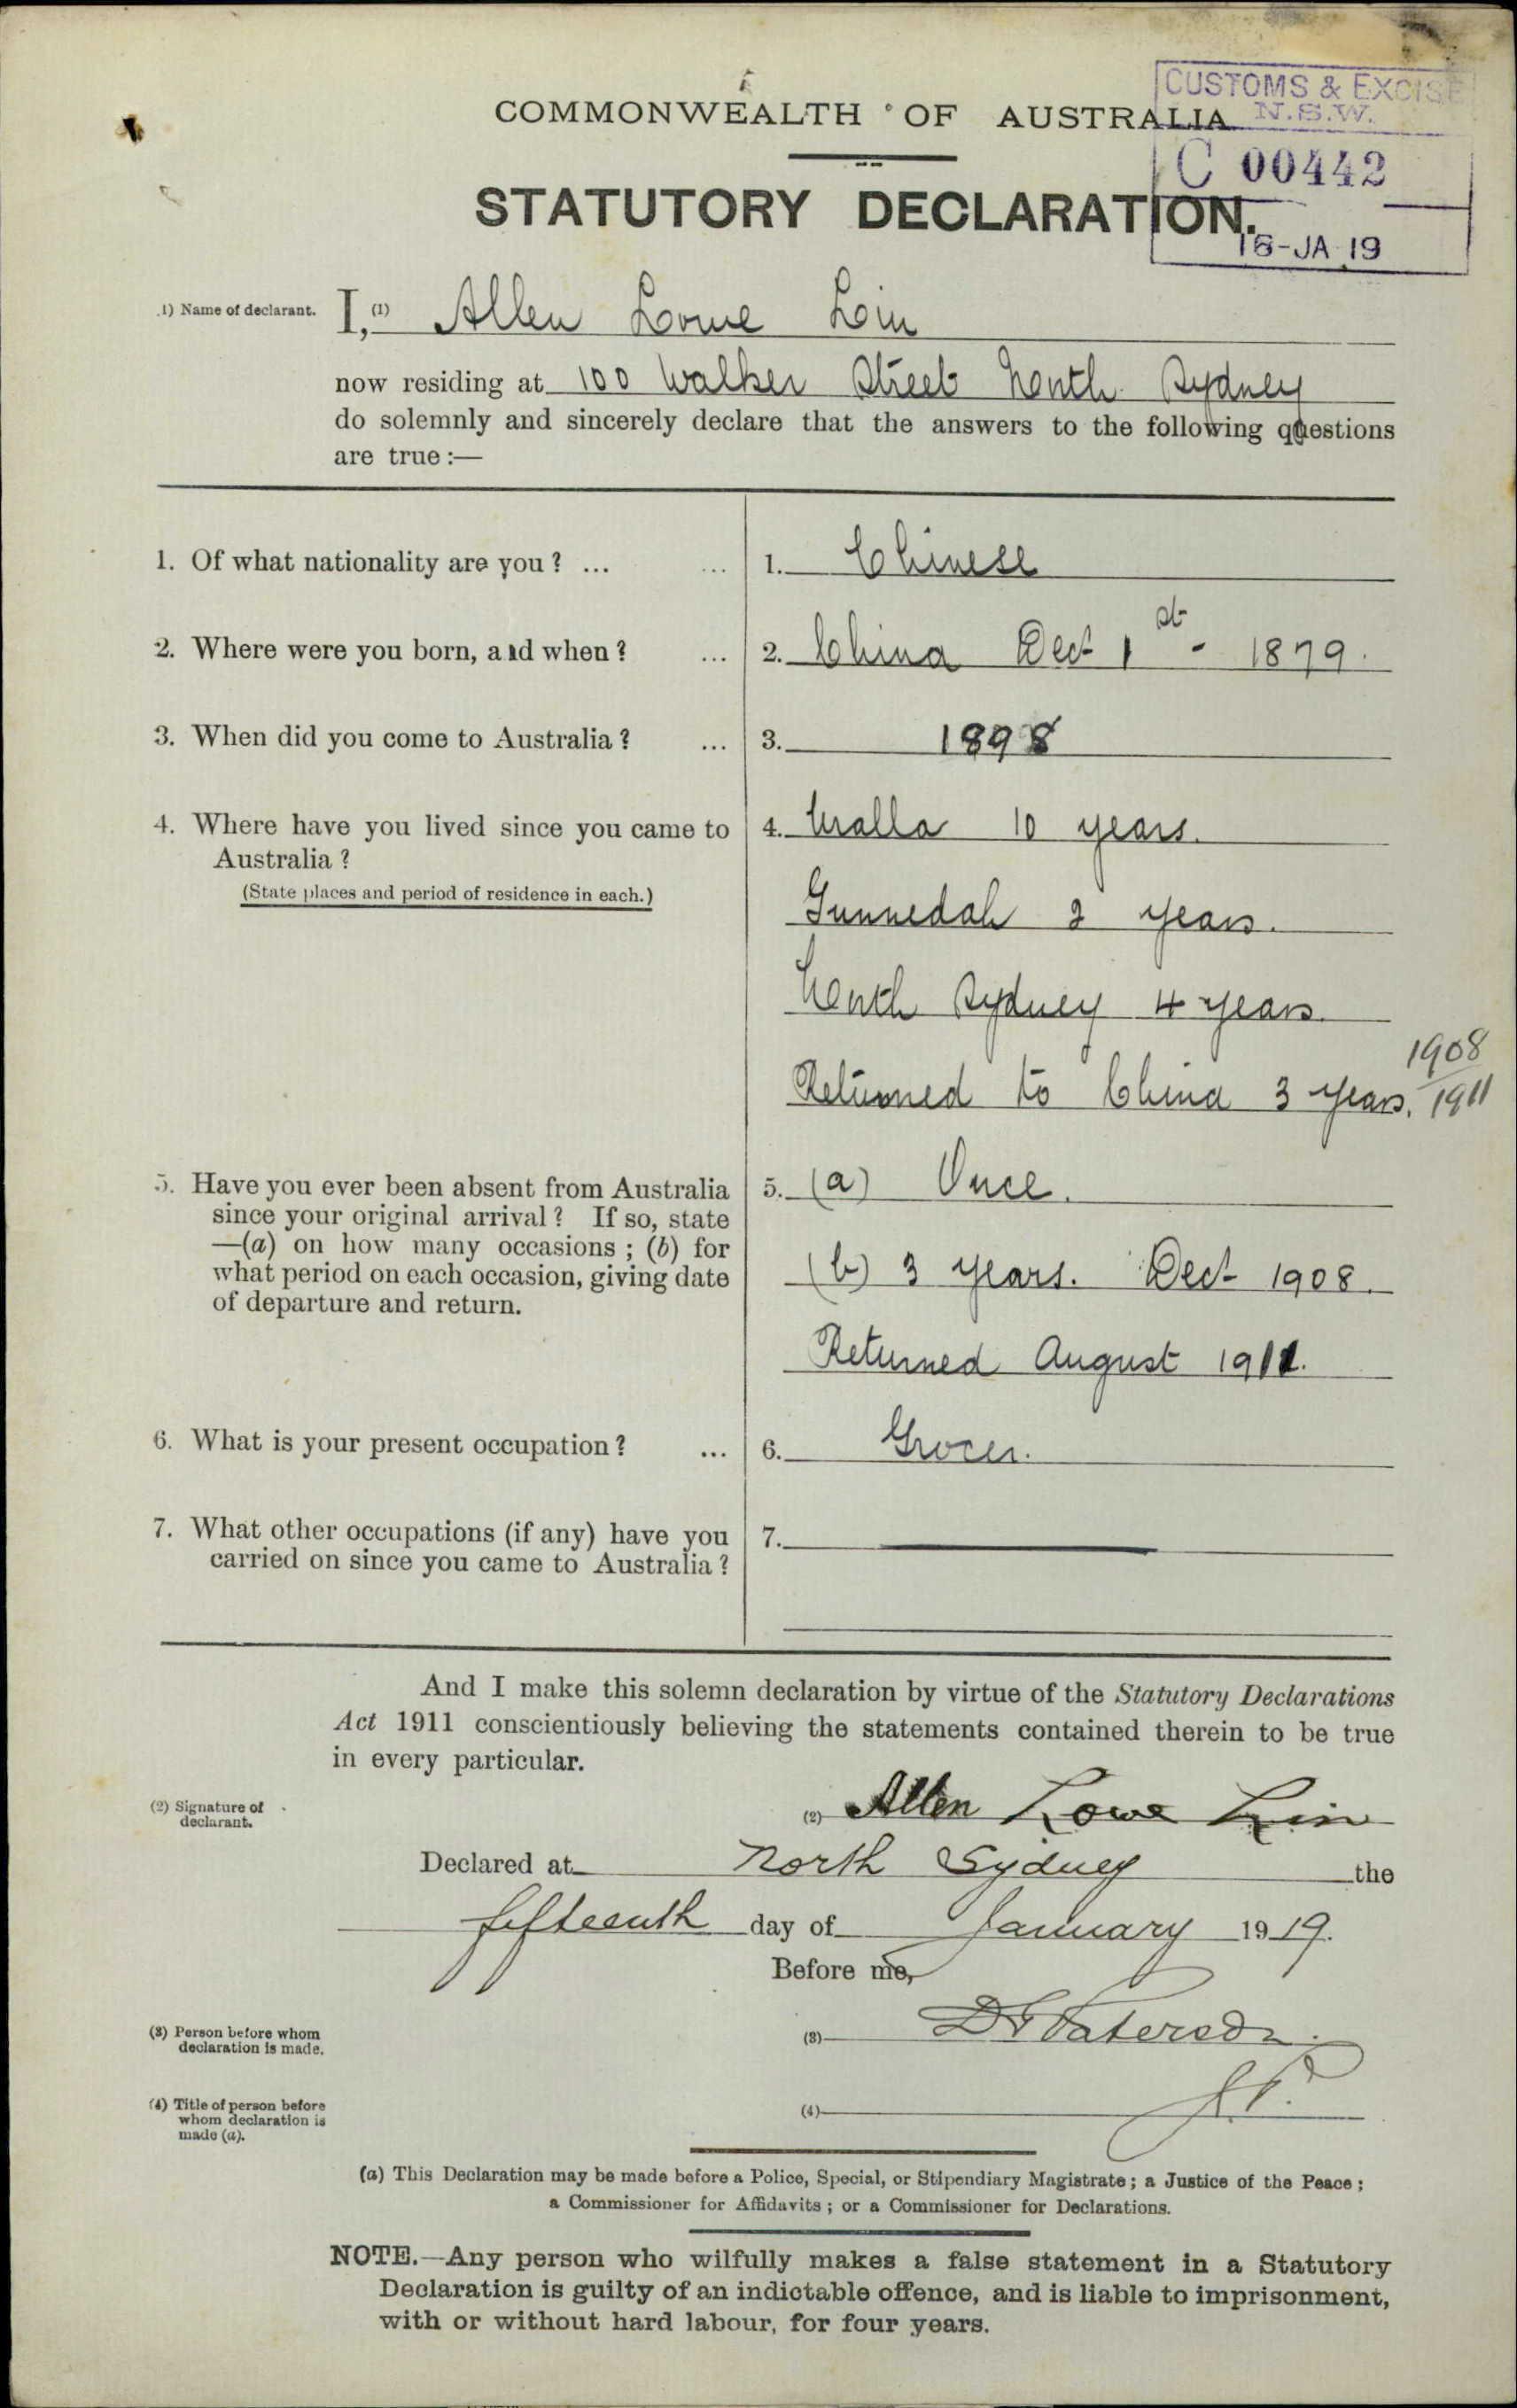 CUSTOMS & EXCISE
N.S.W.
COMMONWEALTH OF AUSTRALIA
C 00442
STATUTORY DECLARATION.
16-JA 19
1) Name of declarant. I, (1) Allen Lowe Lin
now residing at 100 Walker Street North Sydney
do solemnly and sincerely declare that the answers to the following questions
are true :—
1. Of what nationality are you ? ... ... 1. Chinese
2. Where were you born, and when ? ... 2. China Dec 1st - 1879.
3. When did you come to Australia ? ... 3. 1898
4. Where have you lived since you came to 4. Uralla 10 years.
Australia ?
(State places and period of residence in each.)
Gunnedah 2 years.
North Sydney 4 years
1908
Returned to China 3 years. 1911
5. Have you ever been absent from Australia 5. (a) Once.
since your original arrival ? If so, state
—(a) on how many occasions ; (b) for
what period on each occasion, giving date (b) 3 years. Dec 1908.
of departure and return.
Returned August 1911.
6. What is your present occupation ? ... 6. Grocer.
7. What other occupations (if any) have you 7.
carried on since you came to Australia ?
And I make this solemn declaration by virtue of the Statutory Declarations
Act 1911 conscientiously believing the statements contained therein to be true
in every particular.
(2) Signature of (2) Allen Lowe Lin
declarant.
Declared at North Sydney the
fifteenth day of January 1919.
Before me,
(3) Person before whom (3) D Paterson.
declaration is made.
(4) Title of person before (4) J.P.
whom declaration is
made (a).
(a) This Declaration may be made before a Police, Special, or Stipendiary Magistrate ; a Justice of the Peace ;
a Commissioner for Affidavits ; or a Commissioner for Declarations.
NOTE.—Any person who wilfully makes a false statement in a Statutory
Declaration is guilty of an indictable offence, and is liable to imprisonment,
with or without hard labour, for four years.